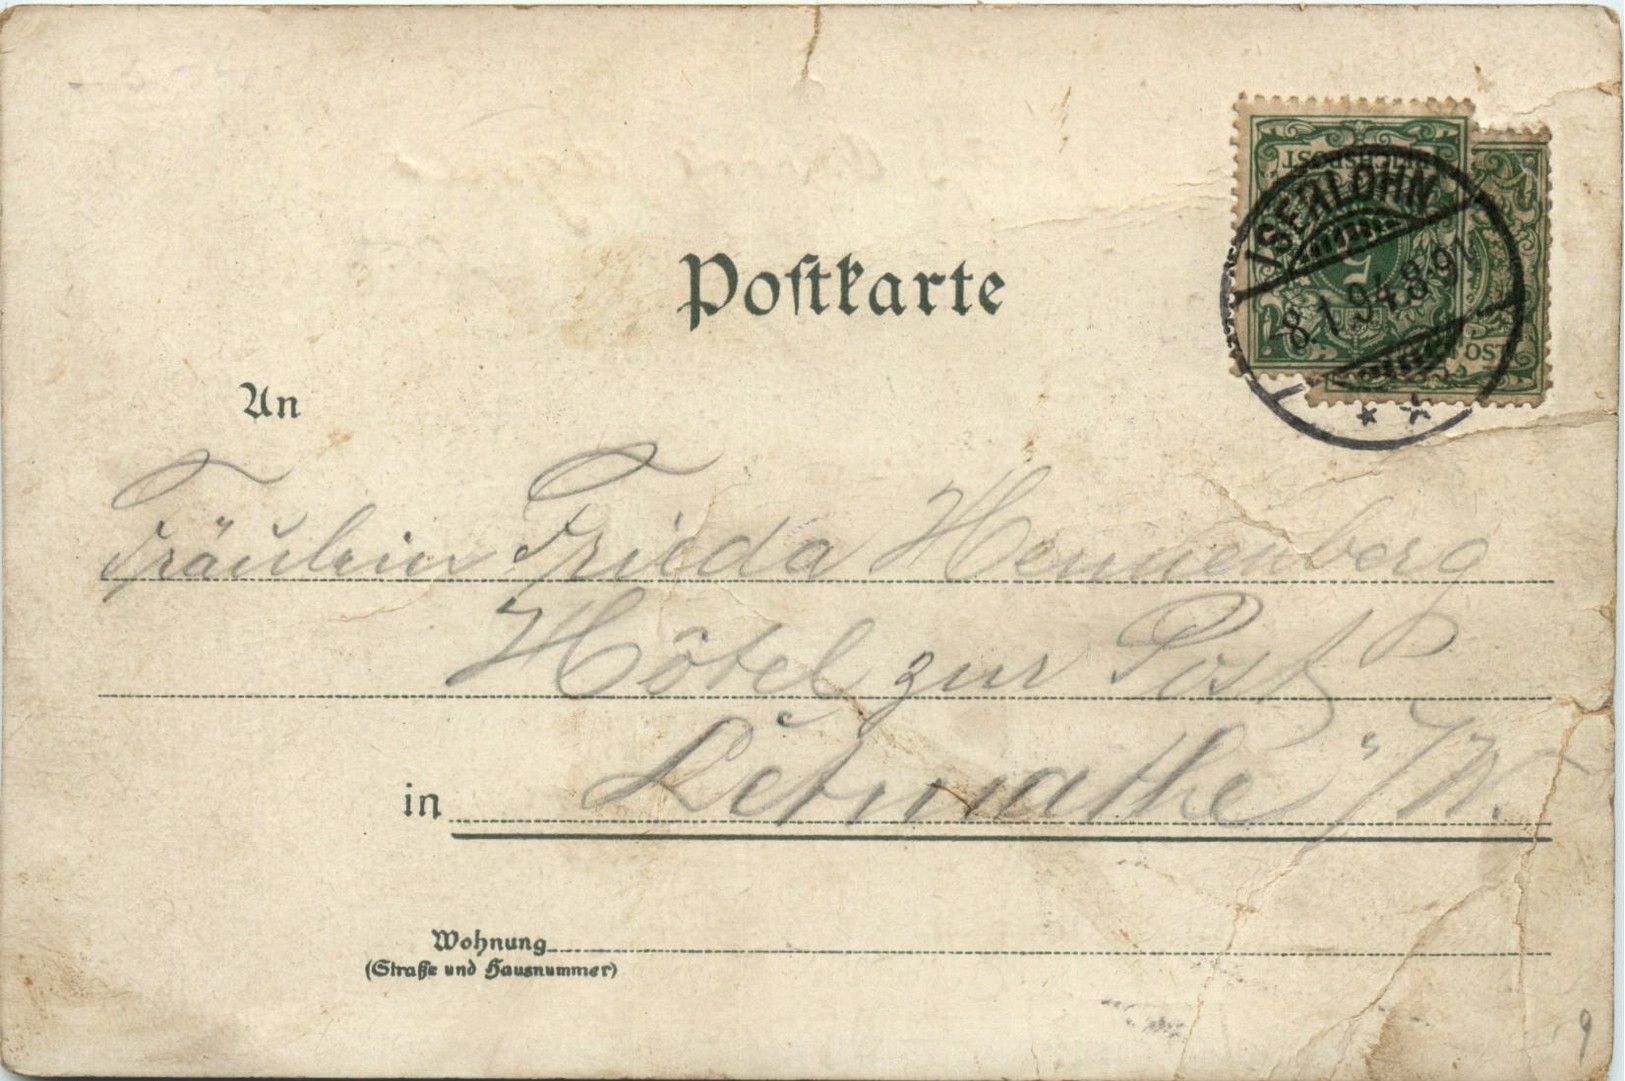 REICHSPOST
ISERLOHN
8.1.94.8-9V.
Postkarte
An
Fräulein Frieda Hennenberg
Hôtel zur Post
in Letmathe i/W.
Wohnung
(Straße und Hausnummer)
9